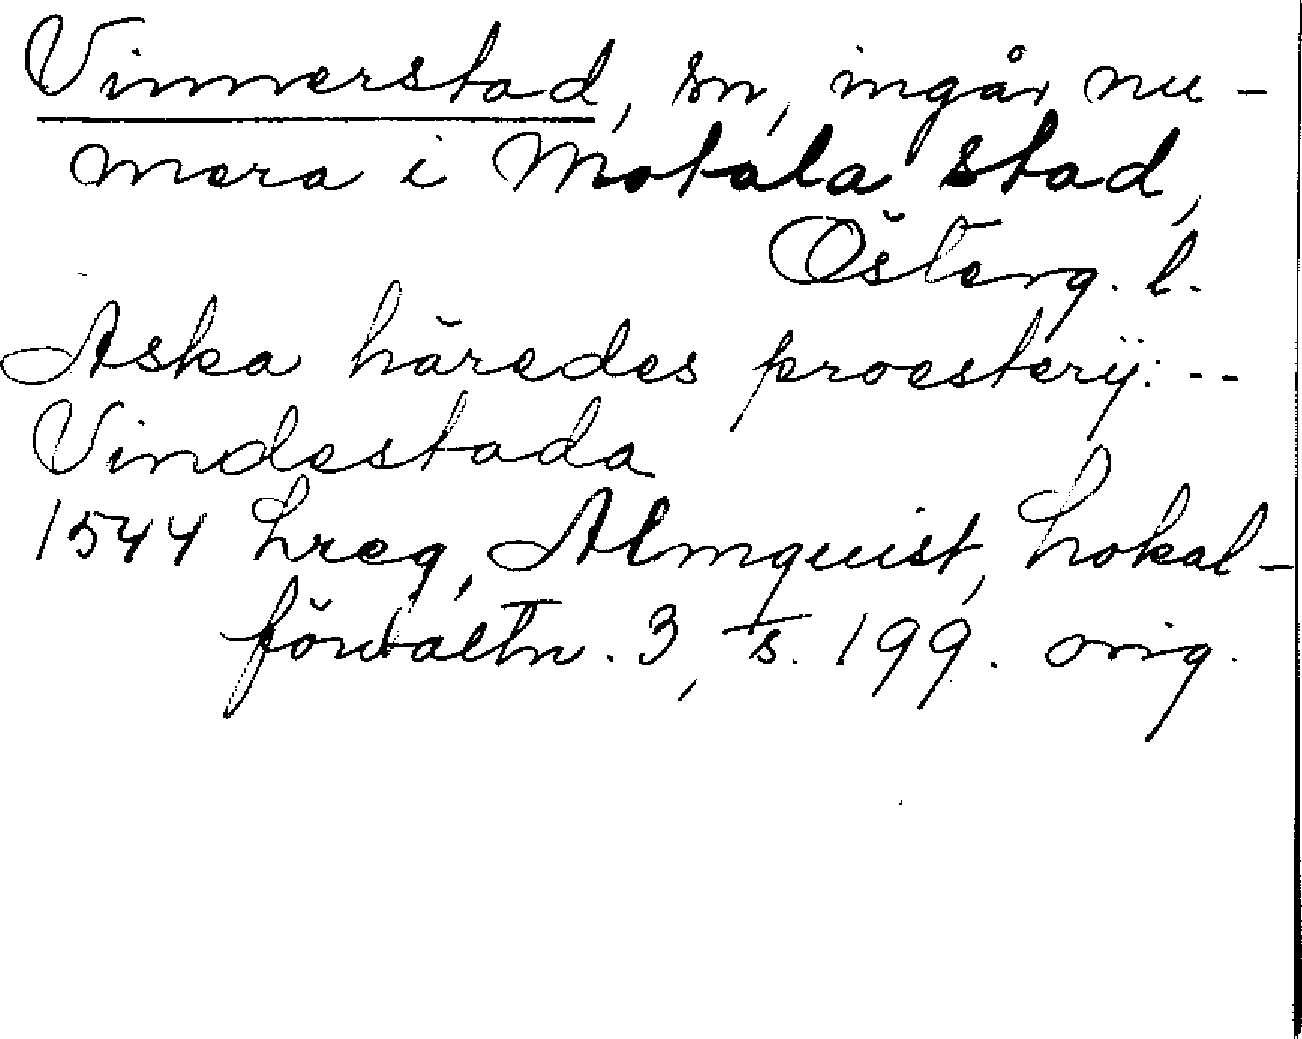 Vinnerstad, sn, ingår nu-
mera i Motala stad,
Österg. l.
Aska häredes proestery: --
Vindestada
1544 Lreg, Almquist, Lokal-
förvaltn. 3, s. 199. orig.